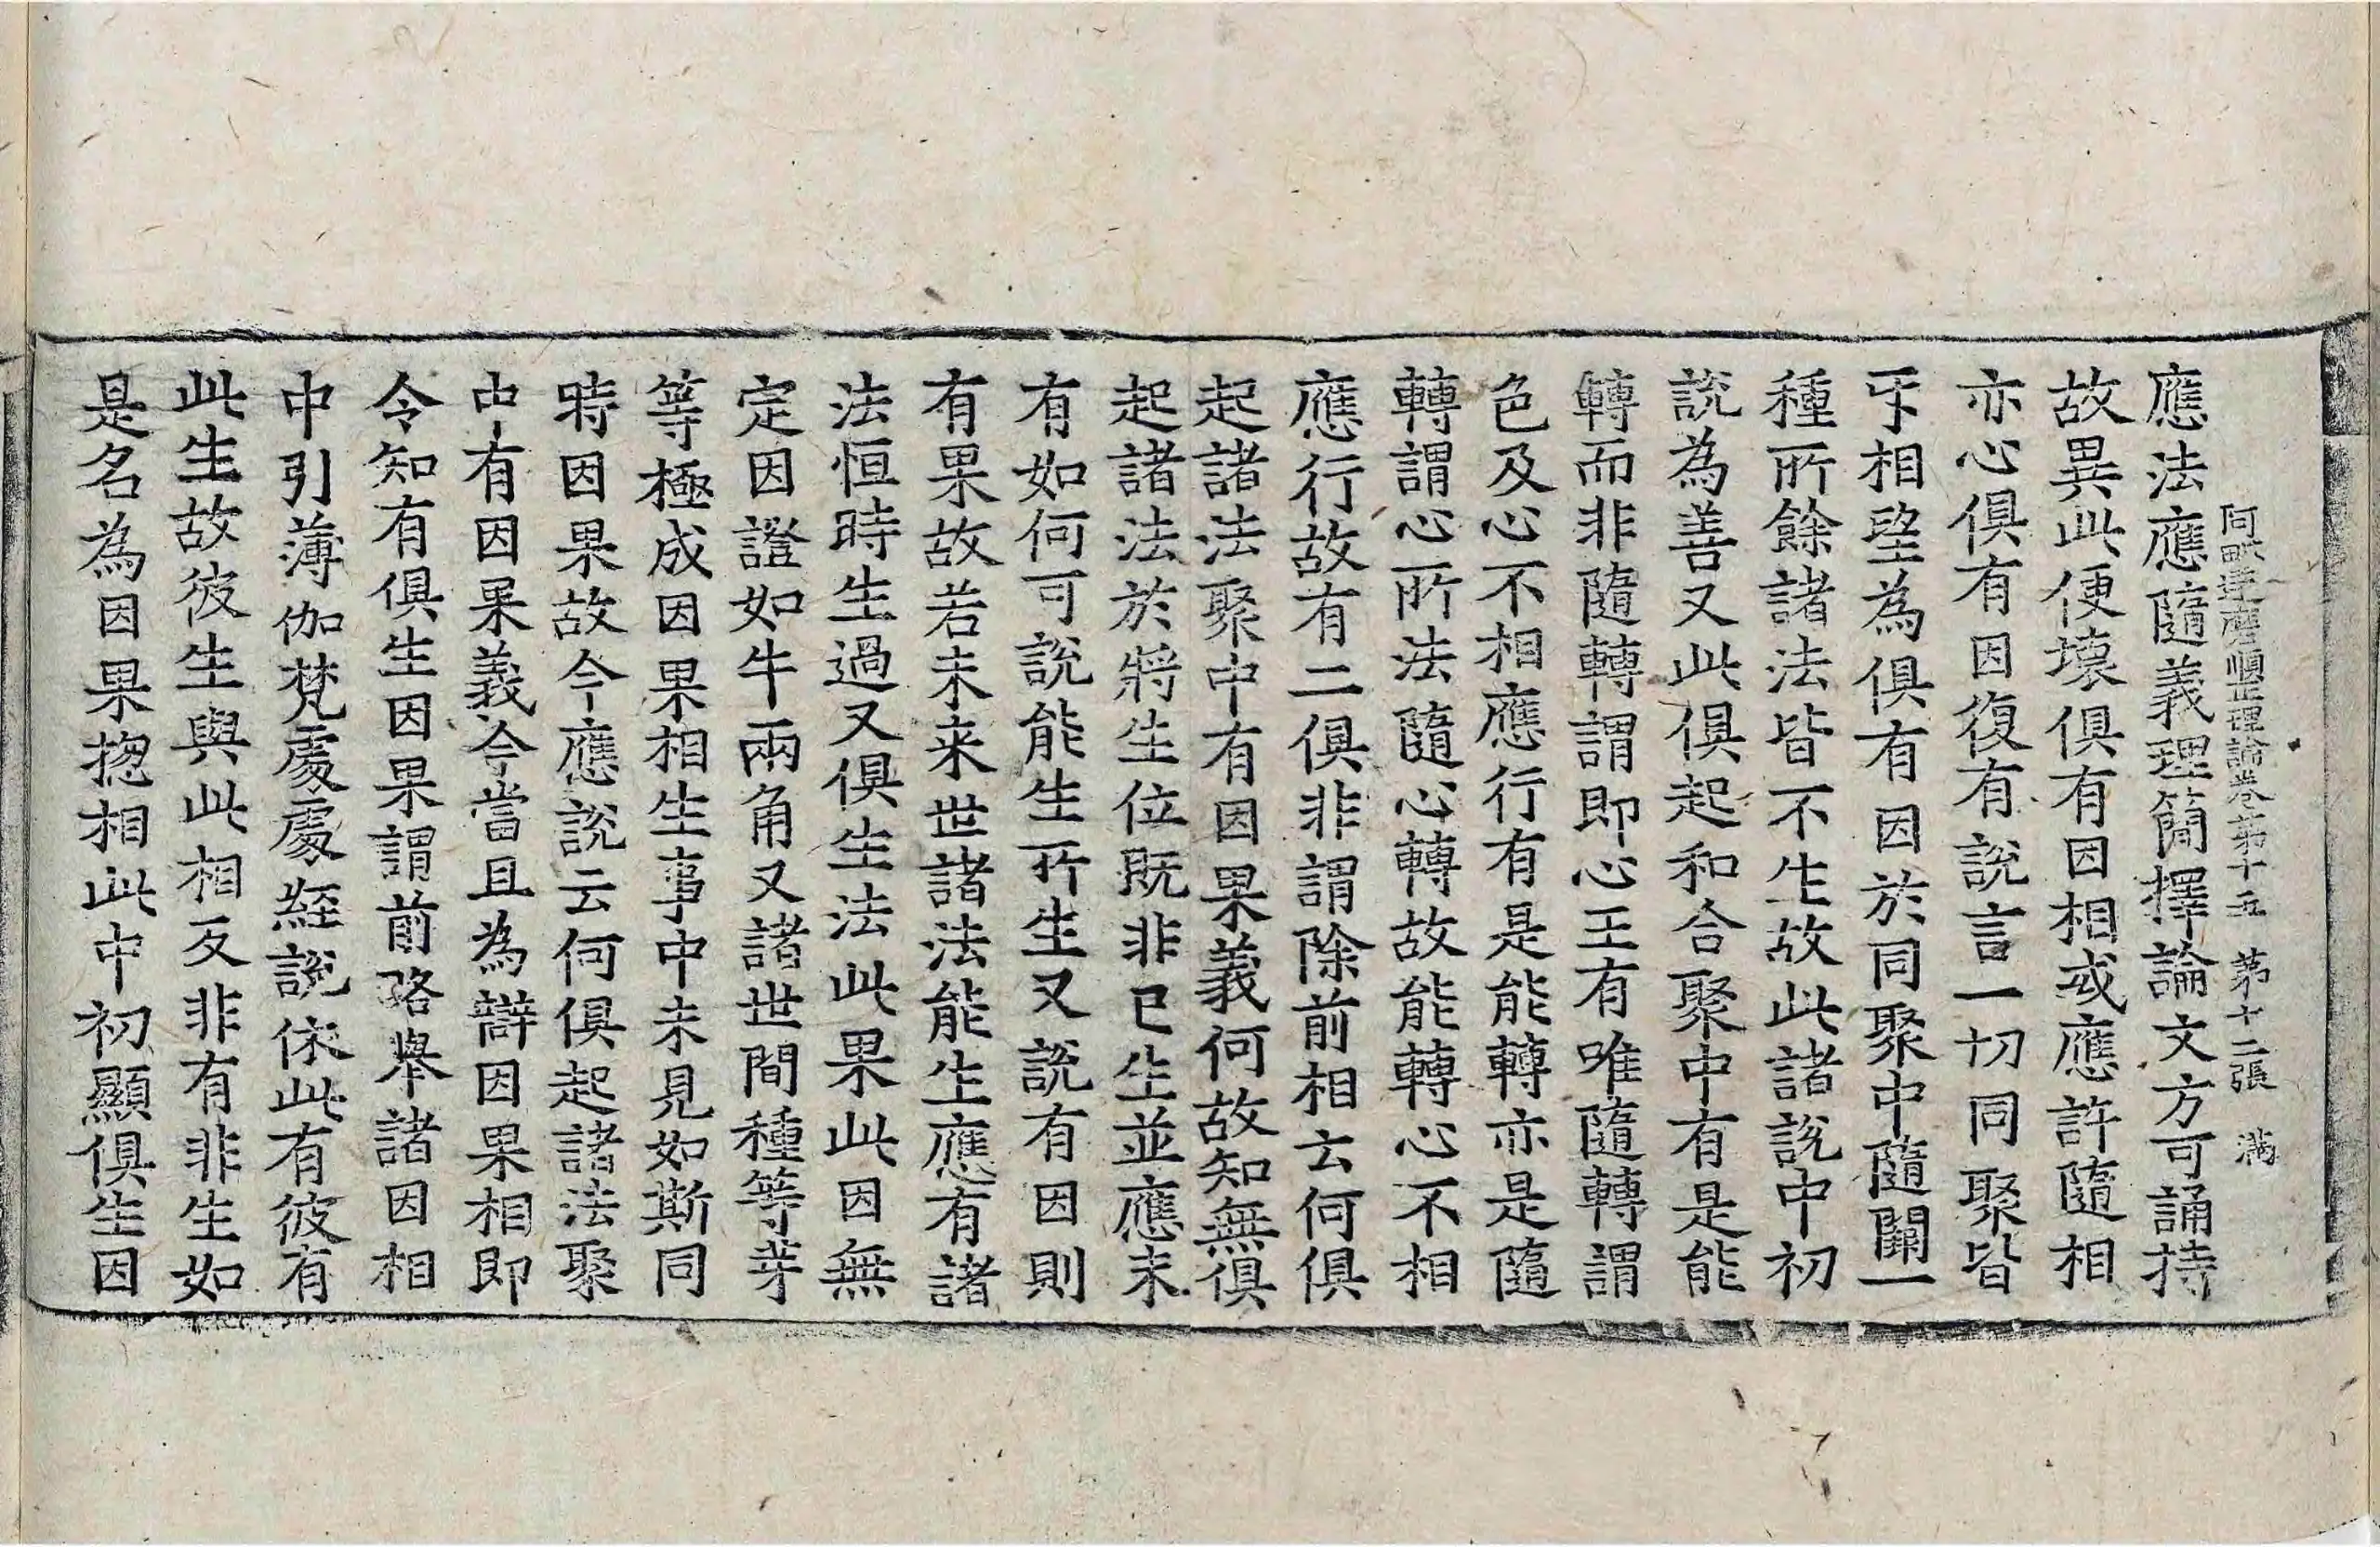 阿毗達磨順正理論卷第十五　第十二張　滿
應法應隨義理簡擇論文方可誦持
故異此便壞俱有因相或應許隨相
亦心俱有因復有說言一切同聚皆
㸦相望為俱有因於同聚中隨闕一
種所餘諸法皆不生故此諸說中初
說為善又此俱起和合聚中有是能
轉而非隨轉謂即心王有唯隨轉謂
色及心不相應行有是能轉亦是隨
轉謂心所法隨心轉故能轉心不相
應行故有二俱非謂除前相云何俱
起諸法聚中有因果義何故知無俱
起諸法於將生位既非已生並應未
有如何可說能生所生又說有因則
有果故若未来世諸法能生應有諸
法恒時生過又俱生法此果此因無
定因證如牛兩角又諸世間種等芽
等極成因果相生事中未見如斯同
時因果故今應說云何俱起諸法聚
中有因果義今當且為辯因果相即
令知有俱生因果謂前略舉諸因相
中引薄伽梵處處經說依此有彼有
此生故彼生與此相反非有非生如
是名為因果揔相此中初顯俱生因